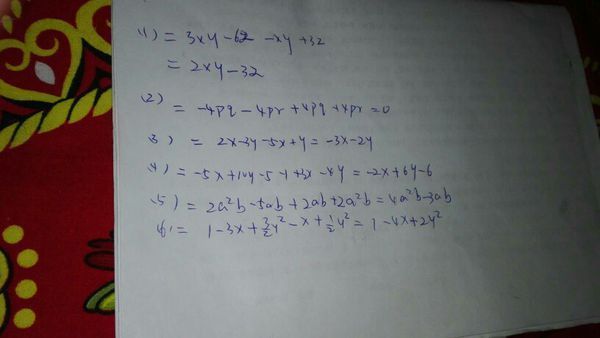 (1) = 3xy-6z-xy+3z
= 2xy-3z
(2) = -4pq-4pr+4pq+4pr=0
(3) = 2x-3y-5x+y=-3x-2y
(4) = -5x+10y-5-1+3x-4y=-2x+6y-6
(5) = 2a²b-5ab+2ab+2a²b=4a²b-3ab
(6) = 1-3x+3/2y²-x+1/2y²=1-4x+2y²